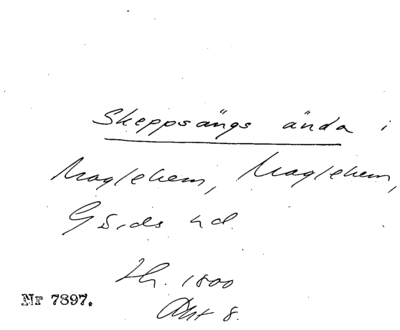 Skeppsängs ända i
Maglehem, Maglehem,
Gärds hd.
Lh. 1800
Akt 8.
Nr 7897.